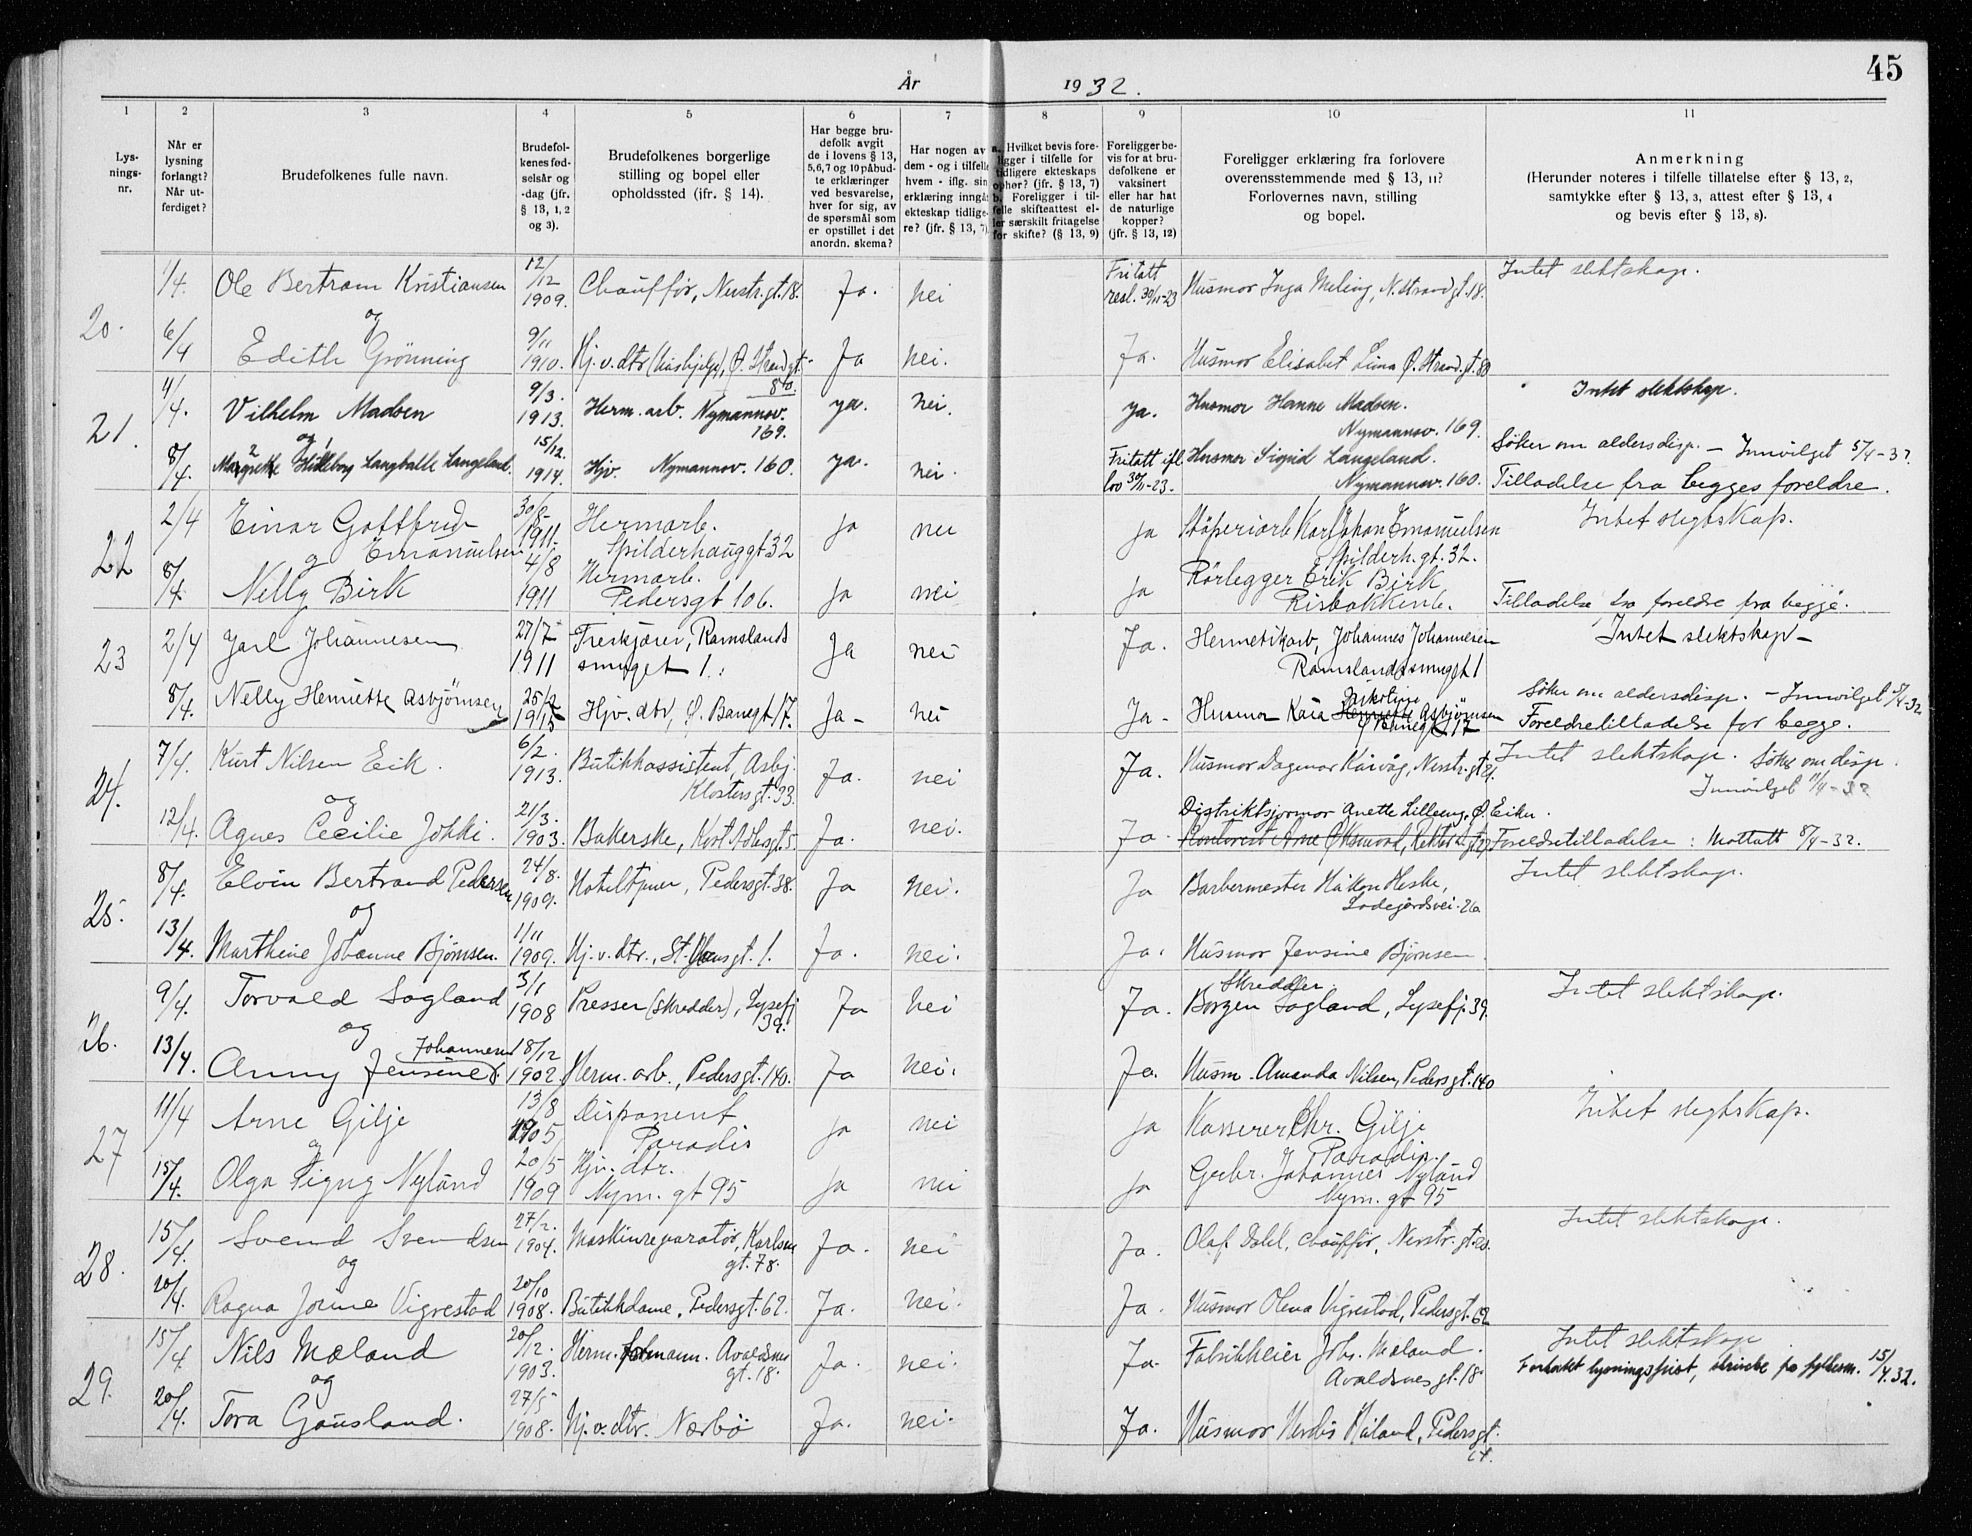 45
År 1932.
1 2 3 4 5 6 7 8 9 10 11
Lysningsnr.
Når er lysning forlangt? Når utferdiget?
Brudefolkenes fulle navn.
Brudefolkenes fødselsår og -dag (jfr. § 13, 1, 2 og 3).
Brudefolkenes borgerlige stilling og bopel eller opholdssted (jfr. § 14).
Har begge brudefolk avgit de i lovens § 13, 5,6,7 og 10 påbudte erklæringer ved besvarelse, hver for sig, av de spørsmål som er opstillet i det anordn. skema?
Har nogen av dem - og i tilfelle hvem - iflg. sin erklæring inngått ekteskap tidligere? (jfr. § 13, 7)
a. Hvilket bevis foreligger i tilfelle for tidligere ekteskaps ophør? (jfr. § 13, 7) b. Foreligger i tilfelle skifteattest eller særskilt fritagelse for skifte? (§ 13, 9)
Foreligger bevis for at brudefolkene er vaksinert eller har hat de naturlige kopper? (jfr. § 13, 12)
Foreligger erklæring fra forlovere overensstemmende med § 13, 11? Forlovernes navn, stilling og bopel.
Anmerkning (Herunder noteres i tilfelle tillatelse efter § 13, 2, samtykke efter § 13, 3, attest efter § 13, 4 og bevis efter § 13, 8).
20. 1/4. Ole Bertram Kristiansen 12/12 1909. Chauffør, Nerstr.gt. 18. Ja. nei Fritatt resl. 30/11-23 Husmor Inga Meling, N. Strandgt. 18. Intet slektskap.
og
6/4 Edith Grønning 9/11 1910. Hj.v. dtr (hushjelp), Ø. Strandgt. 80. Ja nei. Ja. Husmor Elisabet Lima Ø. Strand.gt. 80
21. 4/4. Vilhelm Madsen 9/3. 1913. Herm. arb. Nymannsv. 169. ya. nei. ya. Husmor Hanne Madsen. Nymannsv. 169. Intet slektskap.
og
8/4. Margrethe Langballe Langeland. 15/12. 1914. Hjv. Nymannsv. 160. ya. nei. Fritatt ifl. lov 30/11-23. Husmor Sigrid Langeland. Nymannsv. 160. Søker om aldersdisp. - Innvilget 5/4-32
Tilladelse fra begges foreldre.
22 2/4 Einar Gottfred Emanuelsen 30/8- 1911. Hermarb. Spilderhauggt 32 ja nei ja Støperiarb Karl Johan Emanuelsen Spilderh. gt. 32. Intet slegtskap.
og
8/4 Nelly Birk 4/8 1911 Hermarb. Pedersgt 106. ja nei ja Rørlegger Erik Birk Risbakken 6. Tilladelse fra foreldre fra begge.
23 2/4 Jarl Johannesen 27/7- 1911 Treskjærer, Ramslands smuget 1. Ja nei Ja. Hermetikarb, Johannes Johannesen Ramslandssmuget 1 Intet slektskap -
8/4. Nelly Henriette Asbjørnsen 25/2 1915 Hjv. dtr, Ø. Banegt 17. Ja - nei Ja - Husmor Kaia Asbjørnsen Ø Banegt. 17 Søker om aldersdisp. - Innvilget 5/4-32
Foreldretilladelse for begge.
24. 7/4. Kurt Nilsen Eik. 6/2. 1913. Butikkassistent Asbj. Klostersgt. 33. Ja. nei Ja. Husmor Dagmar Kårvåg, Nerstr. gt 21. Intet slektskap. Søker om disp. Innvilget 11/4-32
og
12/4. Agnes Cecilie Jokki. 21/3. 1903. Bakerske, Kort Adlersgt 5 Ja. nei. Ja. Distriktsjormor Anette Lilleeng, Ø. Eiker. Foreldretilladelse: Mottatt 8/4-32.
25. 8/4. Elvin Bertrand Pedersen 24/8. 1909. Hoteltjener, Pedersgt. 38. Ja nei. Ja Barbermester Håkon Heske, Ladegårdsvei. 26 Intet slektskap.
og
13/4. Marthine Johanne Bjørnsen. 1/11 1909. Hj.v. dtr., St. Hansgt. 1. Ja. nei. Ja. Husmor Jensine Bjørnsen
26. 9/4. Torvald Sagland 3/1 1908 Presser (skredder), Lysefj 39. Ja nei Ja. Skredder Børgen Sagland, Lysefj. 39. Intet slektskap.
og
13/4. Anny Jensine Johannesen 18/12 1902. Herm. arb., Pedersgt. 140. Ja nei. Ja. Husm. Amanda Nilsen, Pedersgt. 140
27 11/4 Arne Gilje 13/8 1905 Disponent Paradis ja nei ja Kasserer Chr. Gilje Paradis. Intet slegtskap.
og
15/4. Olga Signy Nylund 20/5 1909 Hjv. dtr. Nym. gt 95 ja nei ja Gerbr. Johannes Nylund Nym. gt 95
28. 15/4. Svend Svendsen 27/2. 1904. Maskinreparatør, Karlsm gt. 78. Ja. nei Ja. Olaf Dahl, Chauffør, Nerstr. gt. 20. Intet slektskap.
og
20/4. Ragna Jorine Vigrestad 20/10 1908. Butikkdame, Pedersgt. 62. Ja. nei. Ja. Husmor Olena Vigrestad, Pedersgt. 62
29. 15/4 Nils Mæland 20/12. 1903. Herm. formann. Avaldsnes gt. 18. Ja. nei. Ja. Fabrikkeier Johs. Mæland. Avaldsnesgt. 18 Intet slektskap
lysningsfrist, 15/4.32.
og
20/4. Tora Gausland. 27/5 1908. Hj.v. dtr. Nærbø Ja. nei. Ja. Husmor Herdis Håland, Pedersgt.